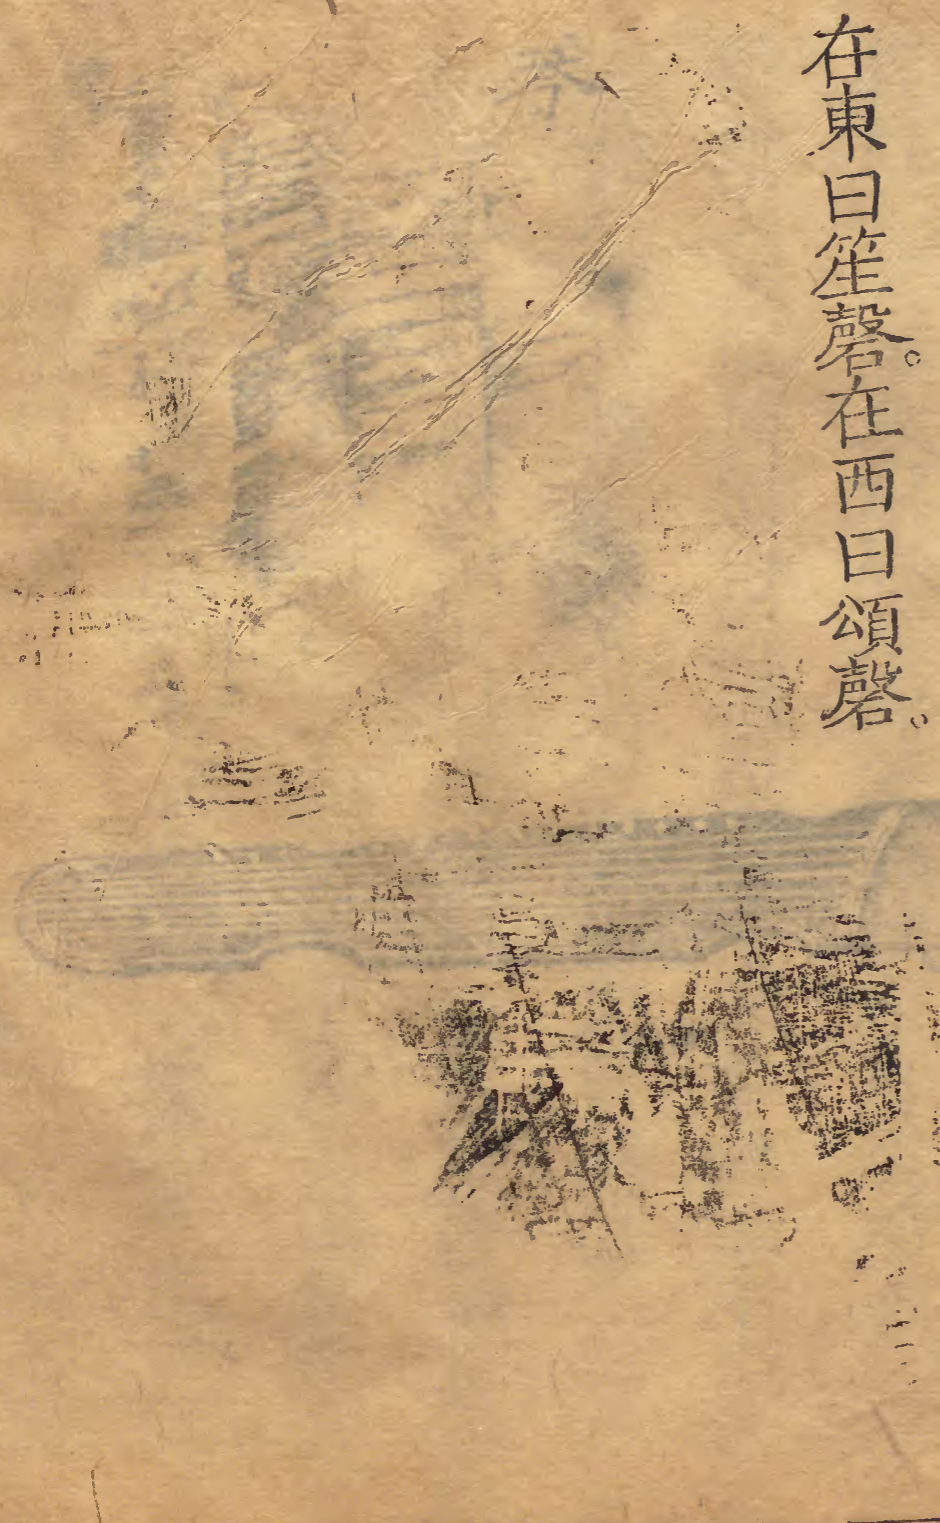 在東曰笙磬。在西曰頌磬。